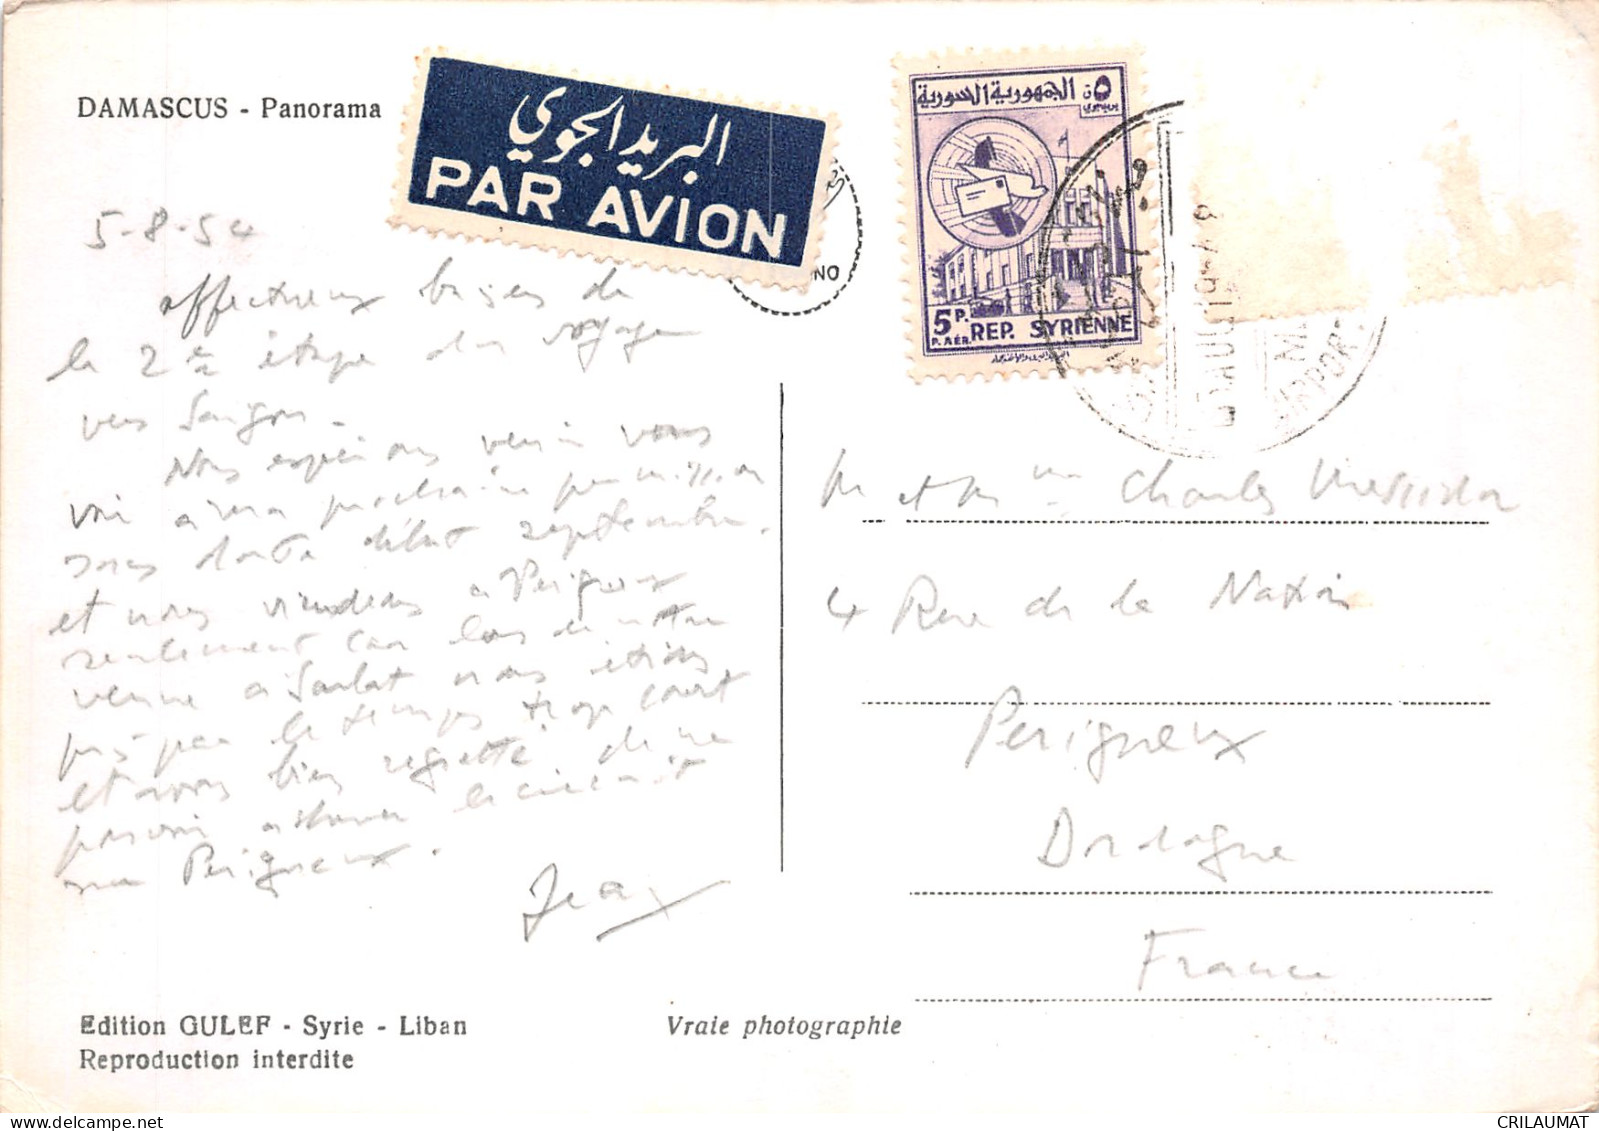 DAMASCUS - Panorama
البريد الجوي
PAR AVION
الجمهورية السورية
٥
5 P.
P. AÉR.
REP. SYRIENNE
AIRPORT
5-8-54
affectueux baisers de
la 2è étape du voyage
vers Saigon.
Nous espérons venir vous
voir à une prochaine permission
sans doute début septembre.
et nous viendrons à Périgueux
seulement car lors de notre
venue à Sarlat nous étions
pris par le temps trop court
et avons bien regretté de ne
pouvoir achever le circuit
sur Périgueux.
Jean
M et Mme Charles
4 Rue de la Nation
Perigueux
Dordogne
France
Edition GULEF - Syrie - Liban
Reproduction interdite
Vraie photographie
CRILAUMAT